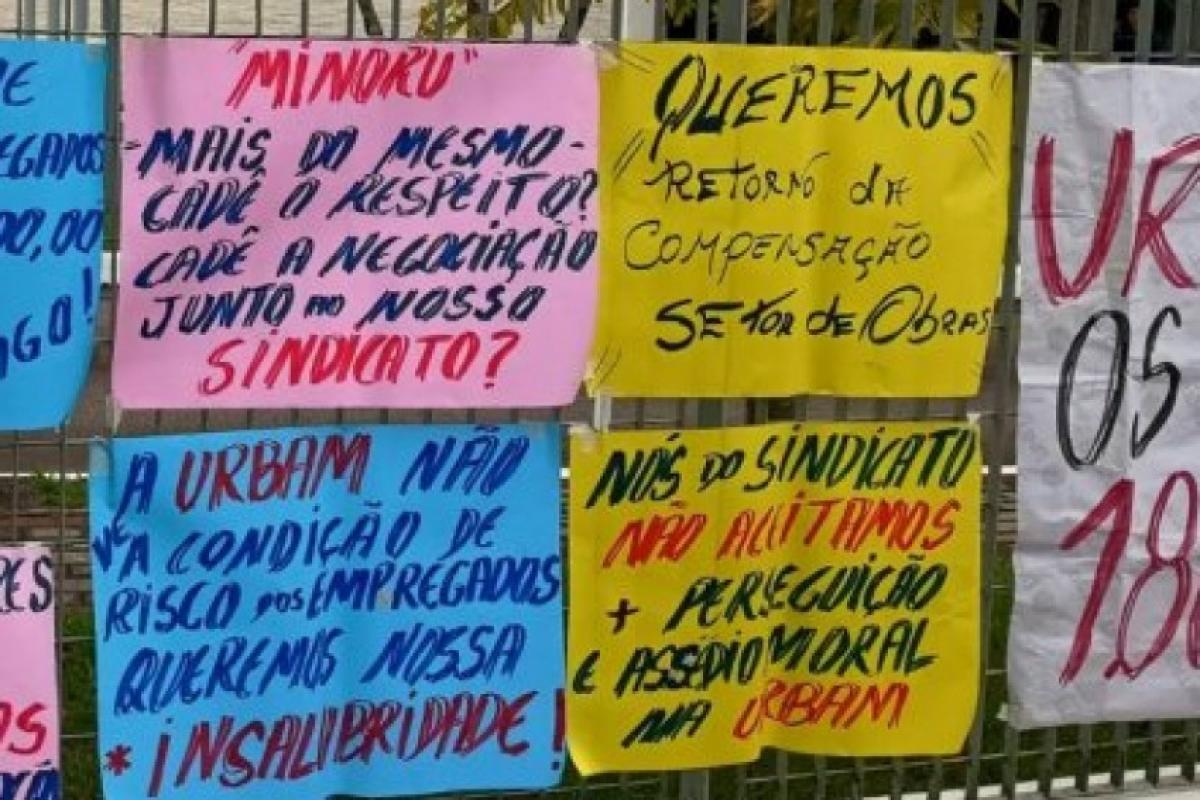 "MINORU"
-MAIS DO MESMO-
CADÊ O RESPEITO?
CADÊ A NEGOCIAÇÃO
JUNTO AO NOSSO
SINDICATO?
"QUEREMOS"
RETORNO da
COMPENSAÇÃO
SETOR de OBRAS
A URBAM NÃO
VÊ A CONDIÇÃO DE
RISCO DOS EMPREGADOS
QUEREMOS NOSSA
* INSALUBRIDADE!
NÓS DO SINDICATO
NÃO ACEITAMOS
+ PERSEGUIÇÃO
E ASSÉDIO MORAL
NA URBAM
00,00
UR
OS
18